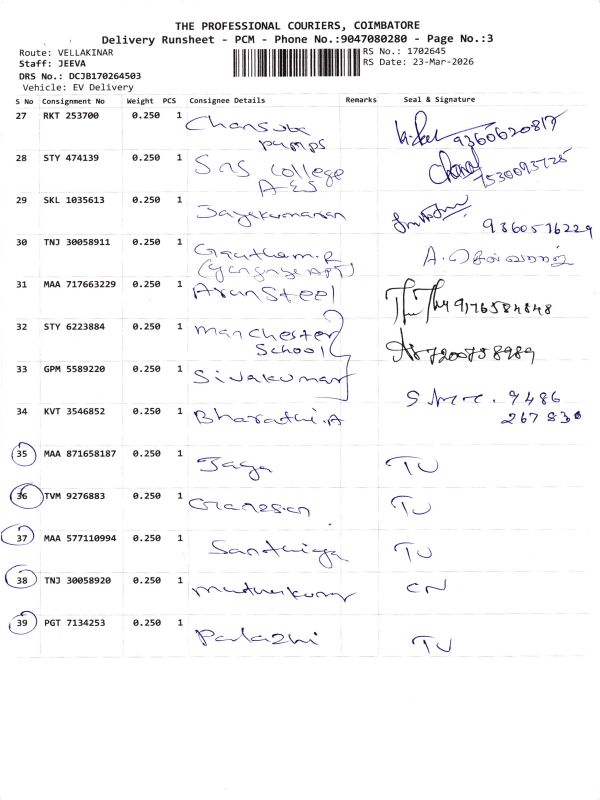 THE PROFESSIONAL COURIERS, COIMBATORE
Delivery Runsheet - PCM - Phone No.:9047080280 - Page No.:3
Route: VELLAKINAR
RS No.: 1702645
Staff: JEEVA
RS Date: 23-Mar-2026
DRS No.: DCJB170264503
Vehicle: EV Delivery
S No Consignment No Weight PCS Consignee Details Remarks Seal & Signature
27 RKT 253700 0.250 1 pumps 9360620817
28 STY 474139 0.250 1 SNS college 7530093728
29 SKL 1035613 0.250 1 Jayakumaran 9360576229
30 TNJ 30058911 0.250 1 Gautham.R A. செல்வராஜ்
31 MAA 717663229 0.250 1 Arun Steel 9176584848
32 STY 6223884 0.250 1 manchester School 7200758989
33 GPM 5589220 0.250 1 Sivakumar
34 KVT 3546852 0.250 1 Bharathi.A 9486 267830
35 MAA 871658187 0.250 1 Jaya TU
36 TVM 9276883 0.250 1 Ganesan TU
37 MAA 577110994 0.250 1 Sandhiya TU
38 TNJ 30058920 0.250 1 muthukumar CN
39 PGT 7134253 0.250 1 Palazhi TU